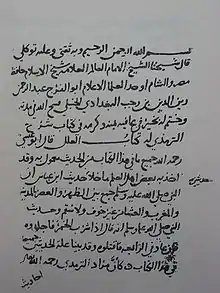 بسم الله الرحمن الرحيم وبه ثقتي وعليه توكلي
قال شيخنا الشيخ الامام العالم العلامة شيخ الاسلام حافظ
مصر والشام اوحد العلماء الاعلام ابو الفرج عبد الرحمن
زين الدين بن رجب البغدادي الحنبلي
وختم له بخير في عافية بمنه وكرمه في كتاب شرح
الترمذي له كتاب العلل قال ابو عيسى
رحمه الله جميع ما في هذا الكتاب من الحديث معمول به وقد
اخذ به بعض اهل العلم ما خلا حديثين حديث ابن عباس ان
النبي صلى الله عليه وسلم جمع بين الظهر والعصر بالمدينة
والمغرب والعشاء من غير خوف ولا سقم وحديث
النبي صلى الله عليه وسلم انه قال اذا شرب الخمر فاجلدوه
فان عاد في الرابعة فاقتلوه وقد بينا علة الحديثين جميعا
في هذا الكتاب مراد الترمذي رحمه الله
احاديث